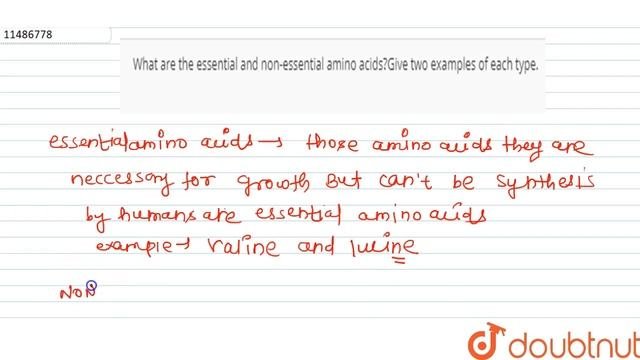 11486778
What are the essential and non-essential amino acids?Give two examples of each type.
essential amino acids → those amino acids they are
neccessory for growth But can't be synthesis
by humans are essential amino acids
example → valine and lucine
NON
doubtnut